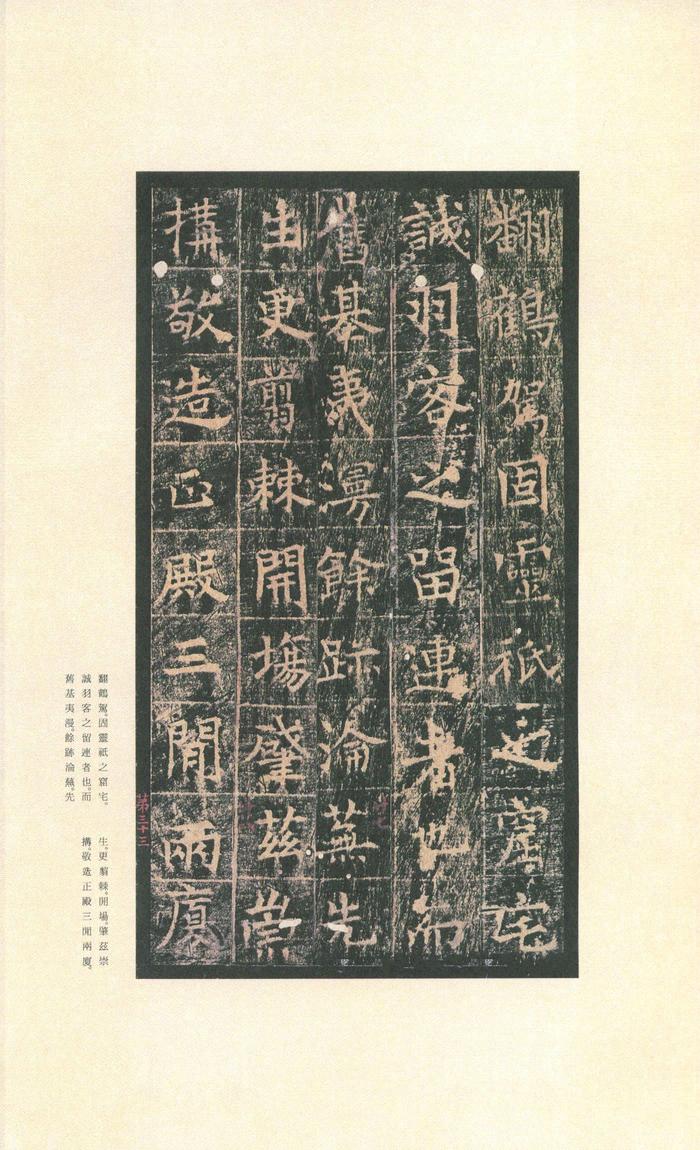 翻鶴駕固靈祇之窟宅
誠羽客之留連者也而
舊基夷漫餘跡淪蕪先
生更翦棘開場肇茲崇
搆敬造正殿三間兩廈
第三十三
翻鶴駕。固靈祇之窟宅。
誠羽客之留連者也。而
舊基夷漫。餘跡淪蕪。先
生。更翦棘。開場。肇茲崇
搆。敬造正殿三間兩廈。